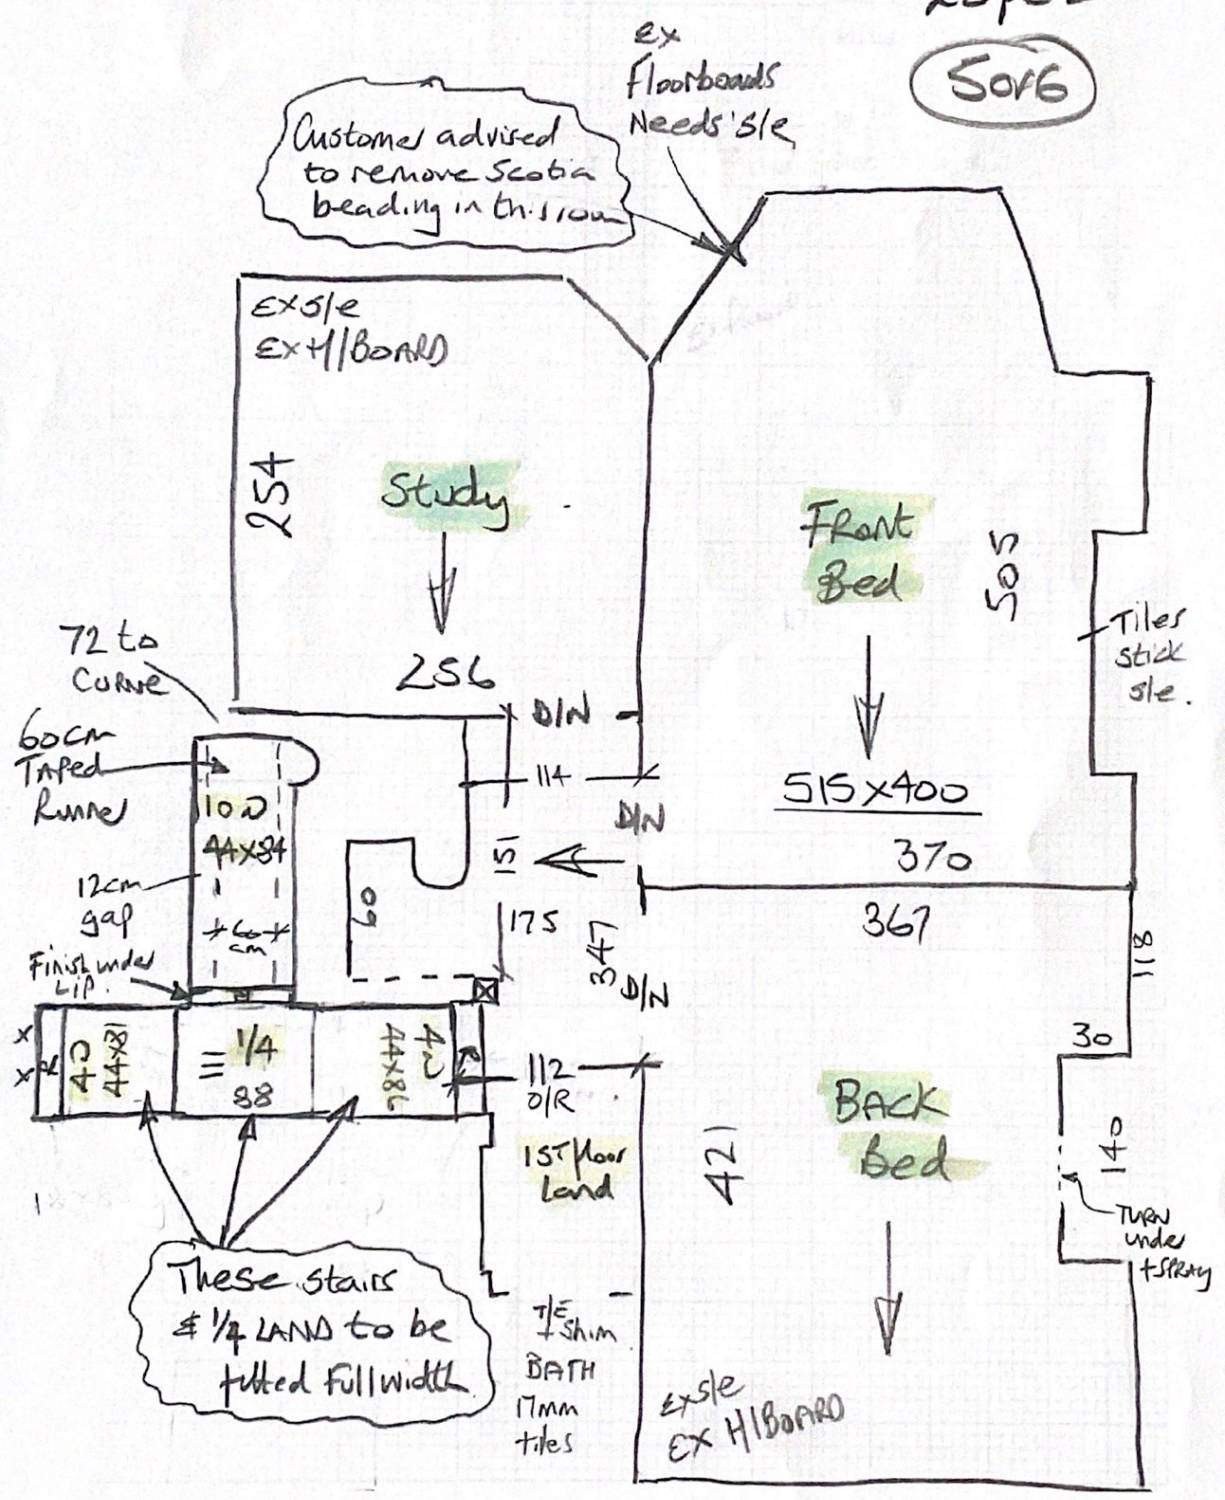 5 or 6
ex
Floorboards
Needs s/e
Customer advised
to remove Scotia
beading in this room
EX S/e
EX H/BOARD
254
Study
256
FRont
Bed
505
Tiles
stick
s/e.
515x400
370
72 to
CURVE
60cm
TAPED
Runner
10 D
44x84
12cm
gap
60
cm
Finish under
LiP.
D/N
114
D/N
151
60
175
347
D/N
367
118
30
140
TURN
under
+ SPRAY
x
x
R
40
44x81
1/4
88
44x86
R
112
O/R
1ST floor
Land
BACK
Bed
421
These stairs
& 1/4 LAND to be
fitted Full width
T/E
+ Shim
BATH
17mm
tiles
EX s/e
EX H/BOARD